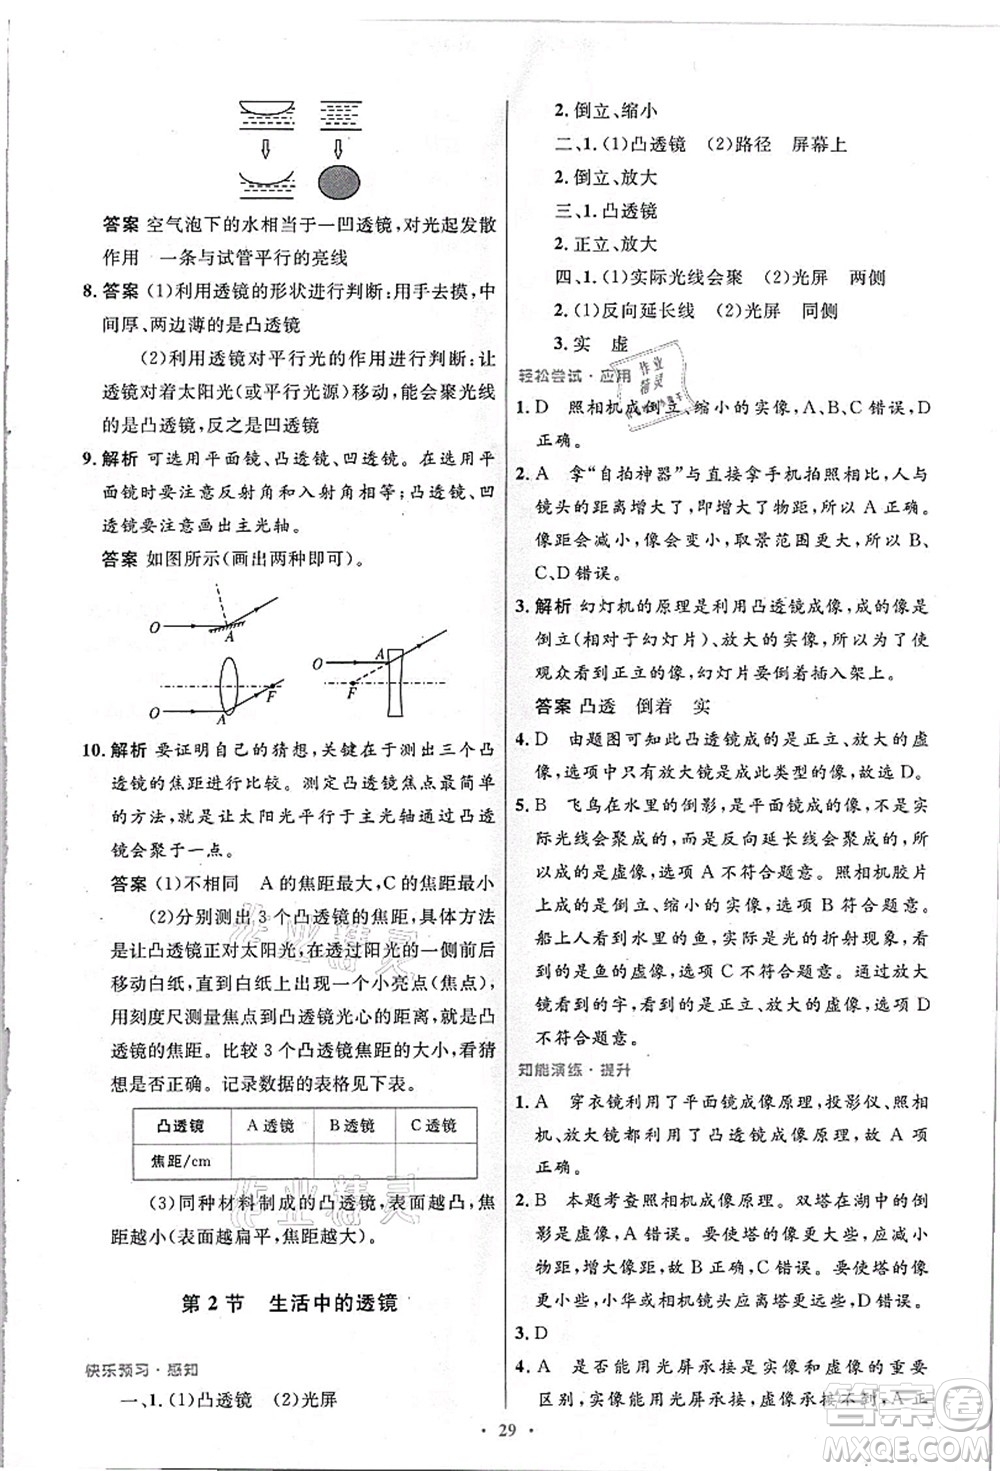 答案 空气泡下的水相当于一凹透镜,对光起发散
作用 一条与试管平行的亮线
8. 答案 (1)利用透镜的形状进行判断:用手去摸,中
间厚、两边薄的是凸透镜
(2)利用透镜对平行光的作用进行判断:让
透镜对着太阳光(或平行光源)移动,能会聚光线
的是凸透镜,反之是凹透镜
9. 解析 可选用平面镜、凸透镜、凹透镜。在选用平
面镜时要注意反射角和入射角相等,凸透镜、凹
透镜要注意画出主光轴。
答案 如图所示(画出两种即可)。
O A
O A F
O A F
10. 解析 要证明自己的猜想,关键在于测出三个凸
透镜的焦距进行比较。测定凸透镜焦点最简单
的方法,就是让太阳光平行于主光轴通过凸透
镜会聚于一点。
答案 (1)不相同 A 的焦距最大,C 的焦距最小
(2)分别测出 3 个凸透镜的焦距,具体方法
是让凸透镜正对太阳光,在透过阳光的一侧前后
移动白纸,直到白纸上出现一个小亮点(焦点),
用刻度尺测量焦点到凸透镜光心的距离,即是凸
透镜的焦距。比较 3 个凸透镜焦距的大小,看猜
想是否正确。记录数据的表格见下表。
凸透镜 A 透镜 B 透镜 C 透镜
焦距/cm
(3)同种材料制成的凸透镜,表面越凸,焦
距越小(表面越扁平,焦距越大)。
第 2 节 生活中的透镜
快乐预习·感知
一、1.(1)凸透镜 (2)光屏
2. 倒立、缩小
二、1.(1)凸透镜 (2)路径 屏幕上
2. 倒立、放大
三、1. 凸透镜
2. 正立、放大
四、1.(1)实际光线会聚 (2)光屏 两侧
2.(1)反向延长线 (2)光屏 同侧
3. 实 虚
轻松尝试·应用
1. D 照相机成倒立、缩小的实像,A、B、C 错误,D
正确。
2. A 拿“自拍神器”与直接拿手机拍照相比,人与
镜头的距离增大了,即增大了物距,所以 A 正确。
像距会减小,像会变小,取景范围更大,所以 B、
C、D 错误。
3. 解析 幻灯机的原理是利用凸透镜成像,成的像是
倒立(相对于幻灯片)、放大的实像,所以为了使
观众看到正立的像,幻灯片要倒着插入架上。
答案 凸透 倒着 实
4. D 由题图可知此凸透镜成的是正立、放大的虚
像,选项中只有放大镜是成此类型的像,故选 D。
5. B 飞鸟在水里的倒影,是平面镜成的像,不是实
际光线会聚成的,而是反向延长线会聚成的,所以
是虚像,选项 A 不符合题意。照相机胶片上的像,
是倒立、缩小的实像,选项 B 符合题意。
船上人看到水里的鱼,实际是光的折射现象,看到
的是鱼的虚像,选项 C 不符合题意。透过放大
镜看到的字,看到的是正立、放大的虚像,选项 D
不符合题意。
知能演练·提升
1. A 穿衣镜利用了平面镜成像原理,投影仪、照相
机、放大镜利用了凸透镜成像原理,故选 A。
2. B 本题考查照相机成像原理。双塔在湖中的倒
影为虚像,A 错误。要使塔的像更大些,要减小物
距,增大像距,B 正确,C 错误。要使塔的像
更小些,小华和相机镜头应离塔更远些,D 错误。
3. D
4. A 是否能用光屏承接是实像和虚像的重要
区别,实像可以用光屏承接,虚像承接不到,A 正
29
作业精灵
作业精灵
作业精灵
答案圈
MXQE.COM